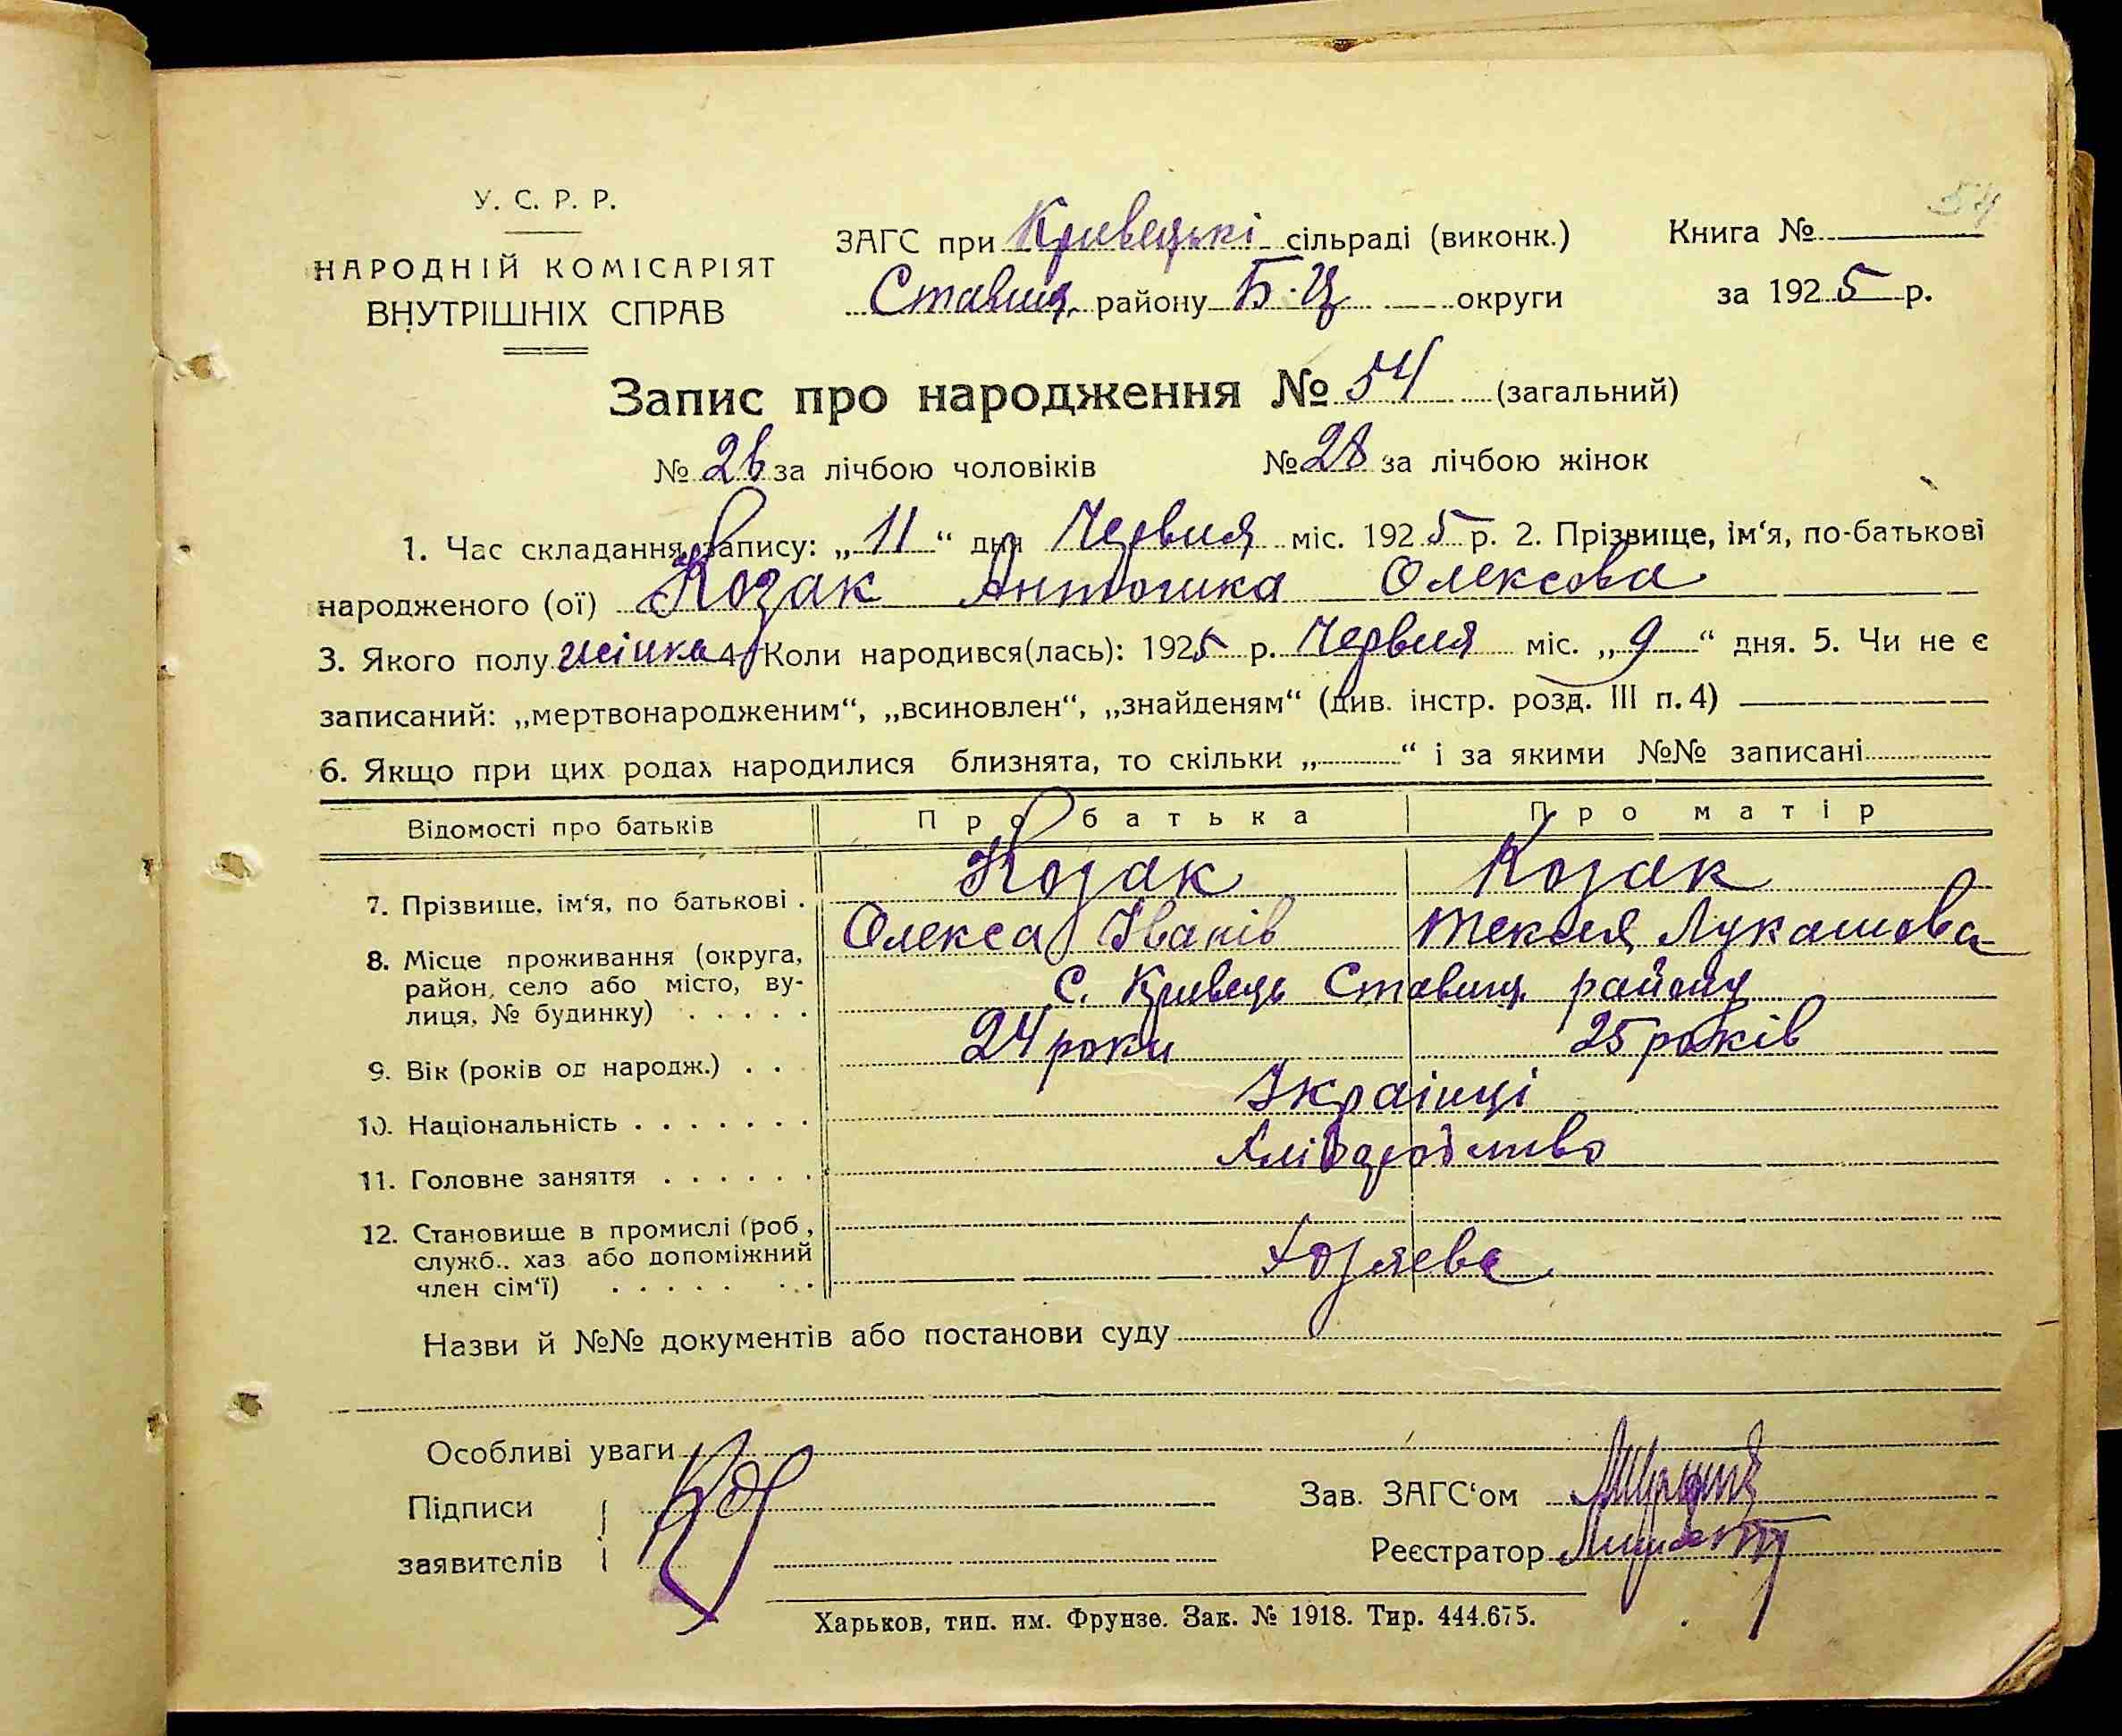 54
У. С. Р. Р.
НАРОДНІЙ КОМІСАРІЯТ
ВНУТРІШНІХ СПРАВ
ЗАГС при Кривецькі сільраді (виконк.)
Книга №
Ставищ. району Б-Ц округи
за 1925 р.
Запис про народження № 54 (загальний)
№ 26 за лічбою чоловіків № 28 за лічбою жінок
1. Час складання запису: „11“ дня Червня міс. 1925 р. 2. Прізвище, ім‘я, по-батькові
народженого (ої) Козак Антоніка Олексова
3. Якого полу жінка 4. Коли народився(лась): 1925 р. Червня міс. „9“ дня. 5. Чи не є
записаний: „мертвонародженим“, „всиновлен“, „знайденям“ (див. інстр. розд. III п. 4)
6. Якщо при цих родах народилися близнята, то скільки „ “ і за якими №№ записані
Відомості про батьків Про батька Про матір
7. Прізвище, ім‘я, по батькові . Козак Козак
Олекса Іванів Текля Лукашова
8. Місце проживання (округа,
район, село або місто, ву-
лиця, № будинку) . . . . .
с. Кривець Ставищ. району
9. Вік (років од народж.) . . 24 роки 25 років
10. Національність . . . . . . . Українці
11. Головне заняття . . . . . . Хліборобство
12. Становище в промислі (роб.,
служб., хаз. або допоміжний
член сім‘ї) . . . . . . .
Хозяева
Назви й №№ документів або постанови суду
Особливі уваги
Підписи
заявителів
Зав. ЗАГС‘ом
Реєстратор
Харьков, тип. им. Фрунзе. Зак. № 1918. Тир. 444.675.